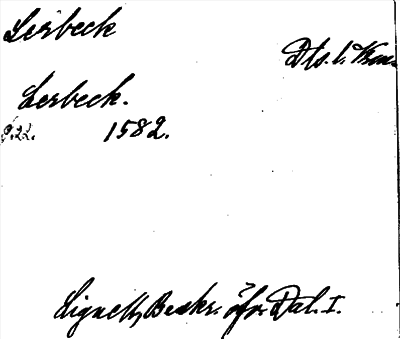 Lerbeck
Dts. l.
Lerbeck.
S. 22. 1582.
Lignell, Beskr. öfver Dal. I.